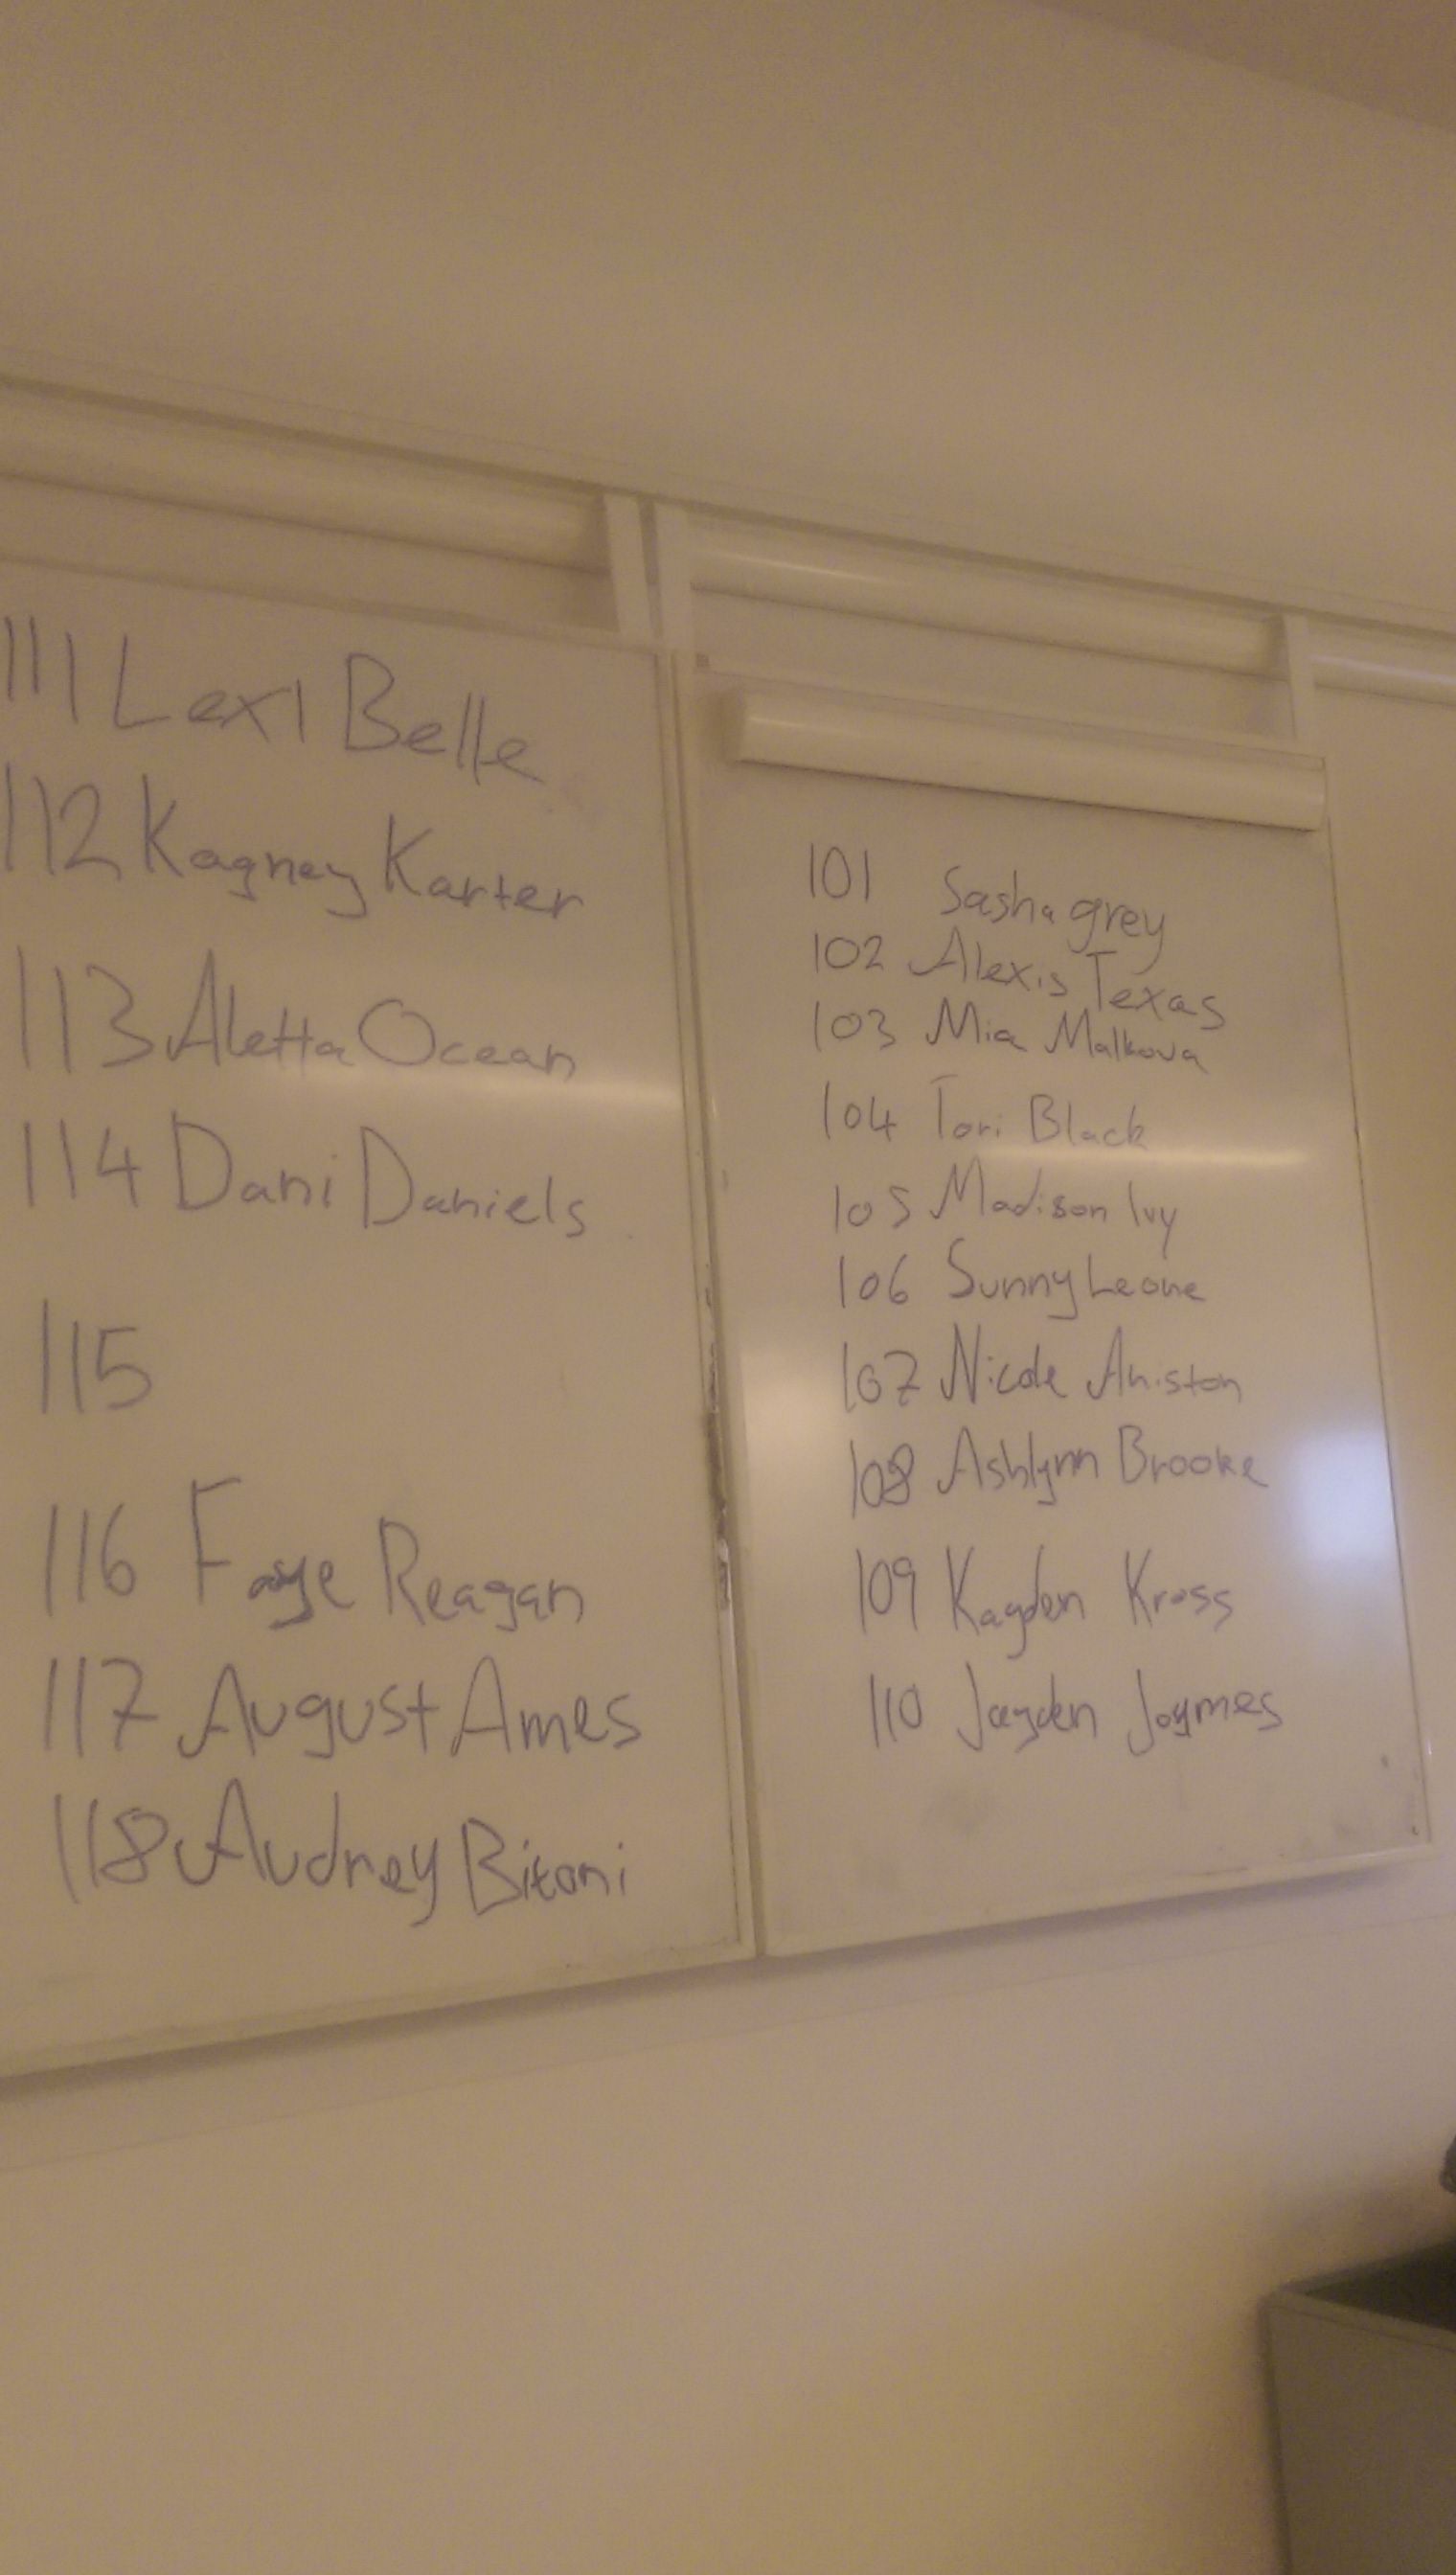 111 Lexi Belle
112 Kagney Karter
113 Aletta Ocean
114 Dani Daniels
115
116 Faye Reagan
117 August Ames
118 Audrey Bitoni
101 Sasha grey
102 Alexis Texas
103 Mia Malkova
104 Tori Black
105 Madison Ivy
106 Sunny Leone
107 Nicole Aniston
108 Ashlynn Brooke
109 Kayden Kross
110 Jayden Jaymes